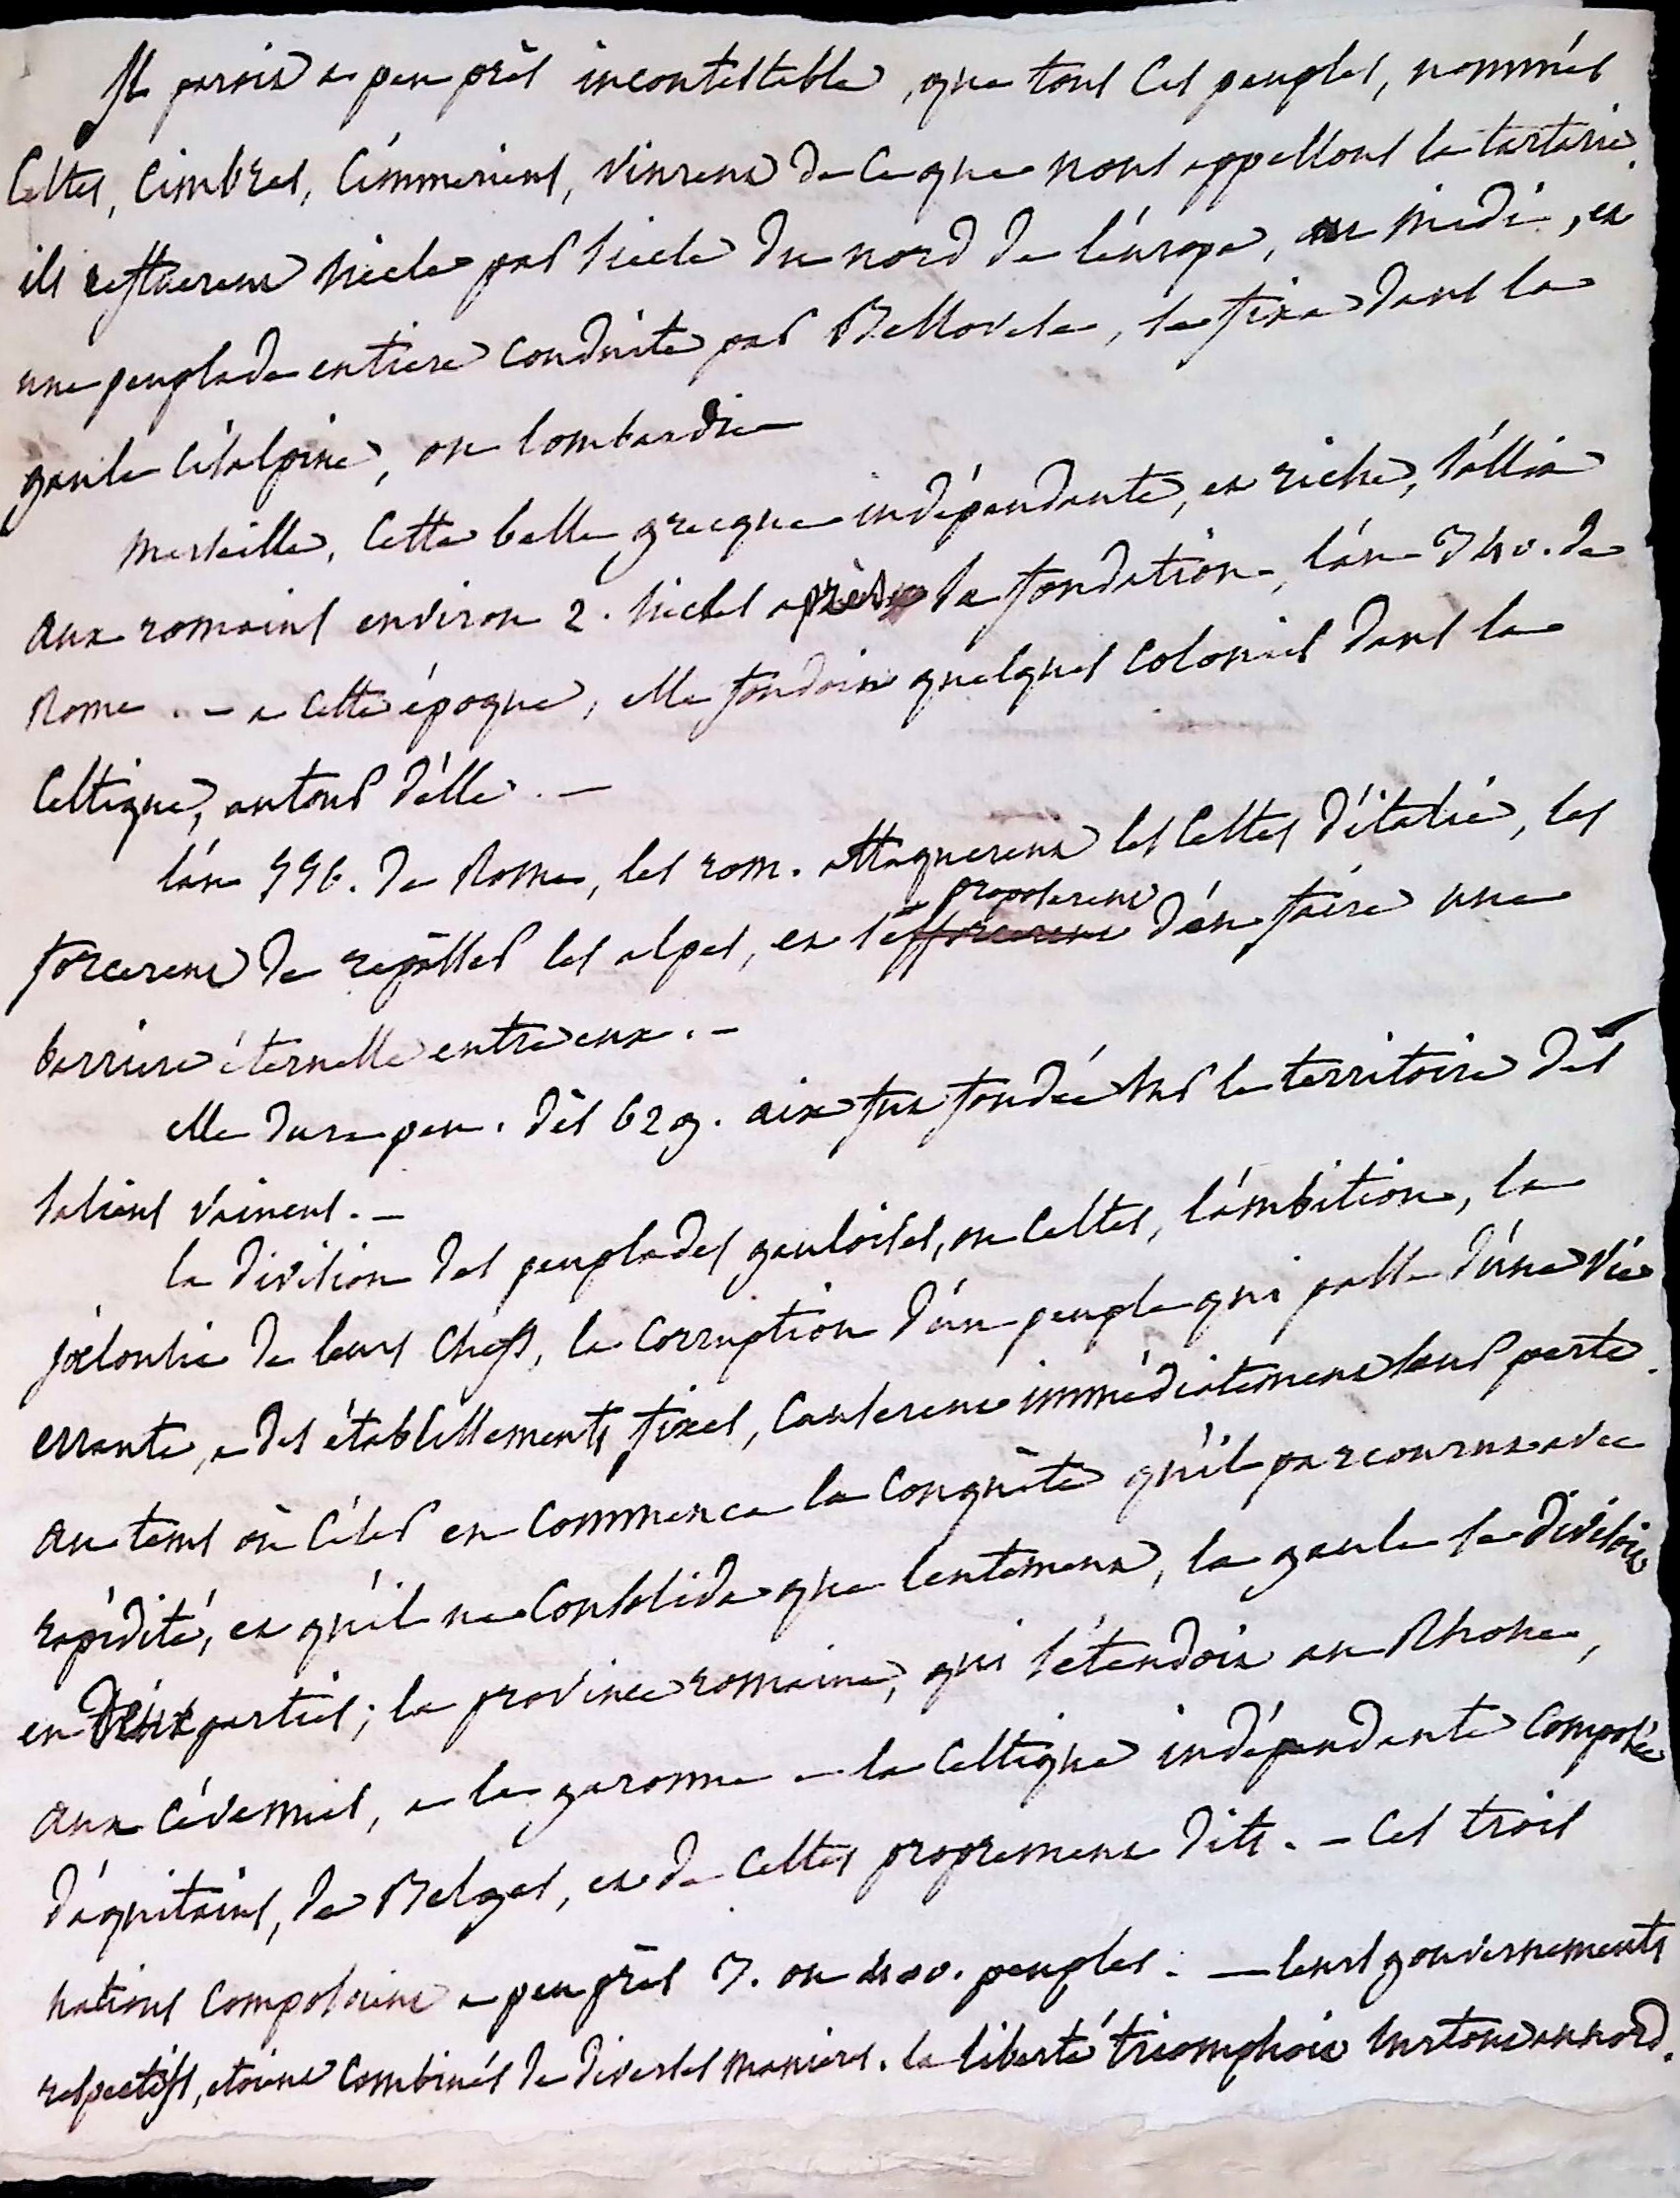 Il paroit a peu près incontestable, que tous ces peuples, nommés
Celtes, Cimbres, Cimmeriens, vinrent de ce que nous appellons la tartarie.
ils refluerent siecle par siecle du nord de l'éurope, au midi, et
une peuplade entiere conduite par Bellovese, se fixa dans la
gaule Cisalpine, ou lombardie
Marseille, Cette belle grecque indépendante, et riche, s'allia
aux romains environ 2. siecles après sa fondation, l'an 340. de
Rome. - a cette époque, elle fondoit quelques colonies dans la
Celtique, autour d'elle. -
l'an 556. de Rome, les rom. attaquerent les Celtes d'italie, les
proposerent
forcerent de repasser les alpes, et s'efforcerent d'en faire une
barriere éternelle entre eux. -
elle dura peu. dès 629. aix fut fondée sur le territoire des
saliens vaincus. -
la division des peuplades gauloises, ou Celtes, l'ambition, la
jalousie de leurs chefs, la corruption d'un peuple qui passe d'une vie
errante, a des établissements fixes, causerent immédiatement leur perte.
au tems où César en commença la conquête qu'il parcourut avec
rapidité, et qu'il ne consolida que lentement, la gaule se divisoit
en deux parties; la province romaine, qui s'étendoit au Rhone,
aux Cévennes, a la garonne - la Celtique indépendante composée
d'aquitains, de Belges, et de Celtes proprement dits. - Ces trois
nations composoient a peu près 3. ou 400. peuples. - leurs gouvernements
respectifs, etoient combinés de diverses manieres. la liberté triomphoit surtout au nord.